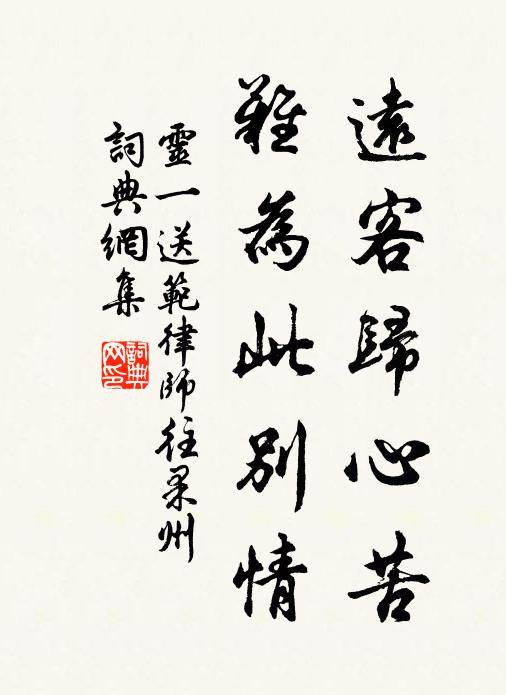 遠客歸心苦
難為此別情
靈一送範律師往果州
詞典網集
詞典网印